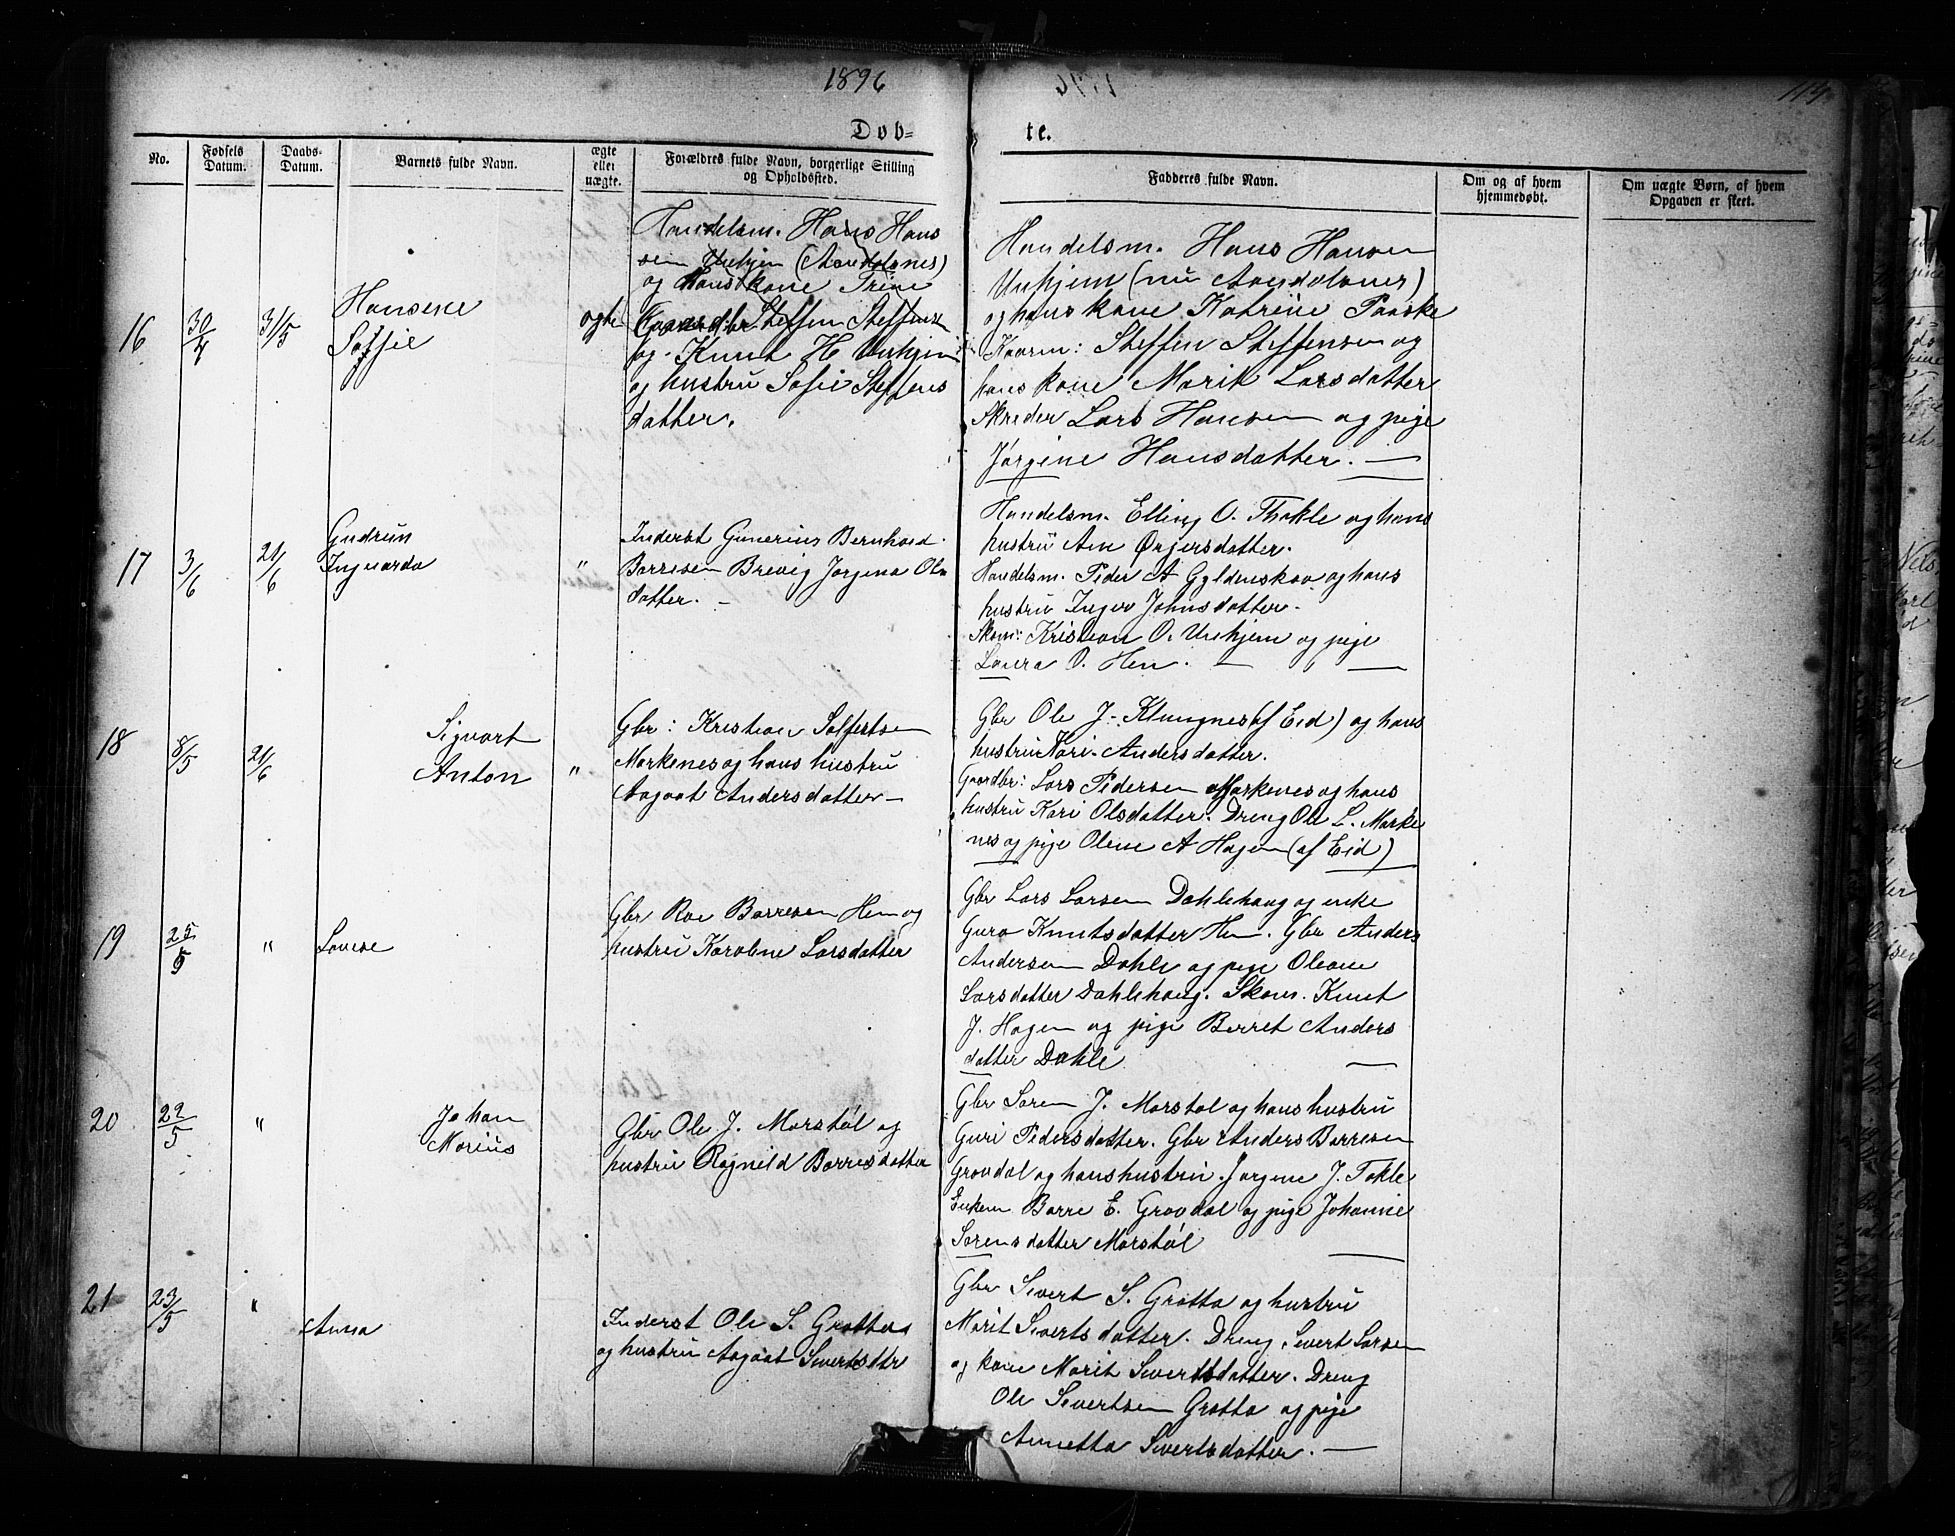 1896
113
Døb-
te.
No.
Fødsels Datum.
Daabs-Datum.
Barnets fulde Navn.
ægte eller uægte.
Forældres fulde Navn, borgerlige Stilling og Opholdssted.
Faddere​s fulde Navn.
Om og af hvem hjemmedøbt.
Om uægte Børn, af hvem Opgaven er skeet.
16
30/4
31/5
Hansene
Soffie
ægte
Handelsm. Hans Hans
sen Unhjem (Aandalsnes)
og Hans kone Trine
Gaardbr. Steffen Steffensen
og Knut H Unhjem
og hustru Sofie Steffens
datter.
Handelsm. Hans Hansen
Unhjem (nu Aandalsnes)
og hans kone Katrine Paaske
Kaarm: Steffen Steffensen og
hans kone Marit Larsdatter
Skreder Lars Hansen og pige
Jørgine Hansdatter. —
17
3/6
21/6
Gudrun
Inguarda
"
Inderst Gunerius Bernhard
Barresen Brevig Jørgina Ols
datter. —
Handelsm. Elling O. Thokle og hans
hustru Ane Ørjersdatter.
Handelsm. Peder A Gyldenskov og hans
hustru Inger Johnsdatter.
Skom: Kristian O. Unhjem og pige
Laura O. Hen. —
18
8/5
21/6
Sigvart
Anton
"
Gbr: Kristian Solfestsen
Morkenes og hans hustru
Aagaat Andersdatter —
Gbr Ole J. Klungnes (af Eid) og hans
hustru Kari Andersdatter.
Gaardbr: Lars Pedersen Morkenes og hans
hustru Kari Olsdatter. Dreng Ole L. Morke
nes og pige Olene A Hagen (af Eid)
19
25/5
"
Lovise
Gbr Roe Barresen Hen og
hustru Karoline Larsdatter
Gbr Lars Larsen Dahlehaug og enke
Guro Knutsdatter Hen. Gbr Anders
Andersen Dahle og pige Oleane
Larsdatter Dahlehaug. Skom. Knut
J. Hagen og pige Berret Anders
datter Dahle —
20
22/5
"
Johan
Marius
Gbr Ole J. Morstøl og
hustru Ragnild Barresdatter
Gbr Søren J. Morstøl og hans hustru
Guri Pedersdatter. Gbr Anders Barresen
Grovdal og hans hustru Jørgene J. Tokle
Enkem Barre E. Grovdal og pige Johanne
Sørensdatter Morstøl —
21
23/5
"
Anna
Inderst Ole S. Grøtta
og hustru Aagaat Sivertsdtr
Gbr Sivert S. Grøtta og hustru
Marit Sivertsdatter. Dreng Sivert Larsen
og kone Marit Sivertsdatter. Dreng
Ole Sivertsen Grøtta og pige
Annetta Sivertsdatter. —